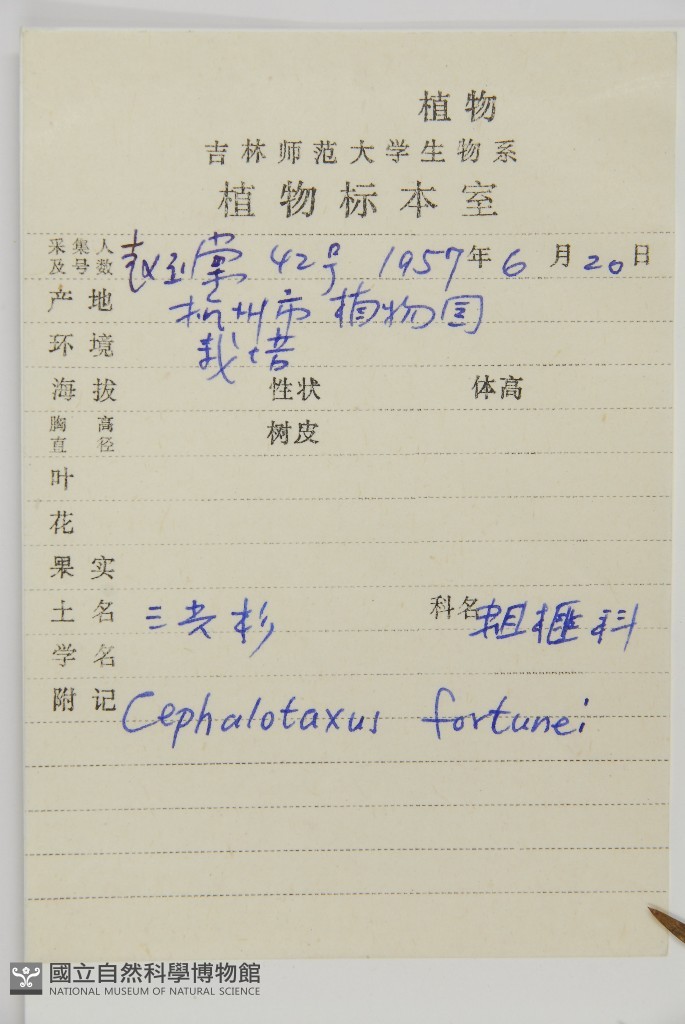 植物
吉林师范大学生物系
植物标本室
采集人及号数 42号 1957年6月20日
产地 杭州市植物园
环境 栽培
海拔 性状 体高
胸高直径 树皮
叶
花
果实
土名 三尖杉 科名 粗榧科
学名
附记 Cephalotaxus fortunei
國立自然科學博物館
NATIONAL MUSEUM OF NATURAL SCIENCE